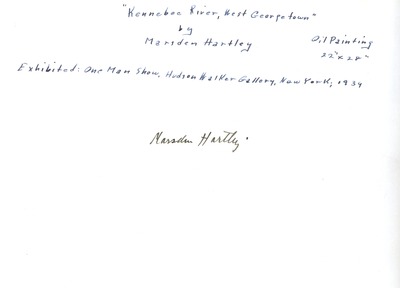 "Kennebec River, West Georgetown"
by
Marsden Hartley
Oil Painting
22" x 28"
Exhibited: One Man Show, Hudson Walker Gallery, New York, 1939
Marsden Hartley.